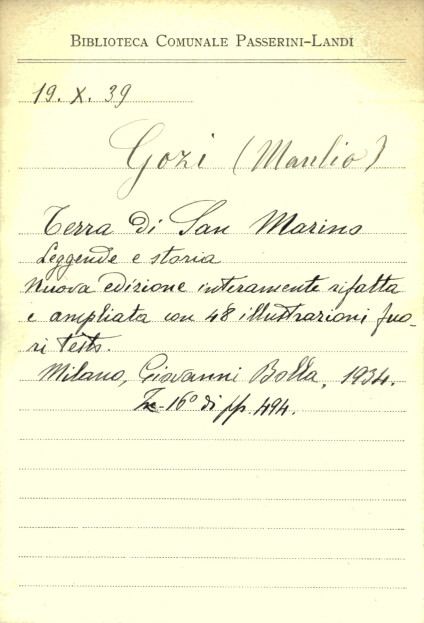 BIBLIOTECA COMUNALE PASSERINI-LANDI
19. X. 39
Gozi (Manlio)
Terra di San Marino
Leggende e storia
Nuova edizione interamente rifatta
e ampliata con 48 illustrazioni fuo-
ri testo.
Milano, Giovanni Bolla, 1934.
In-16° di pp. 494.